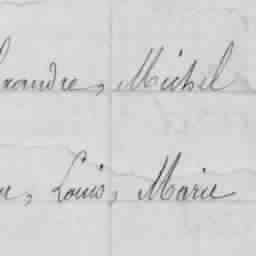 lexandre, Michel
Louis, Marie